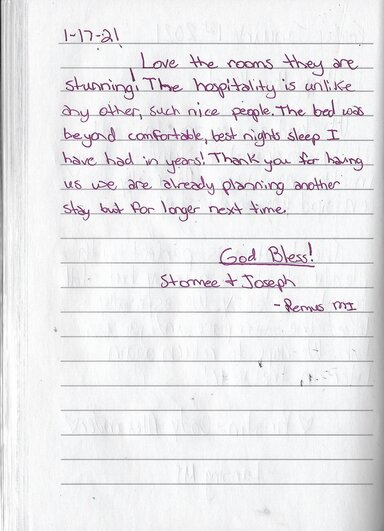 1-17-21
Love the rooms they are
stunning! The hospitality is unlike
any other, such nice people. The bed was
beyond comfortable, best nights sleep I
have had in years! Thank you for having
us we are already planning another
stay but for longer next time.
God Bless!
Stormee + Joseph
- Remus MI